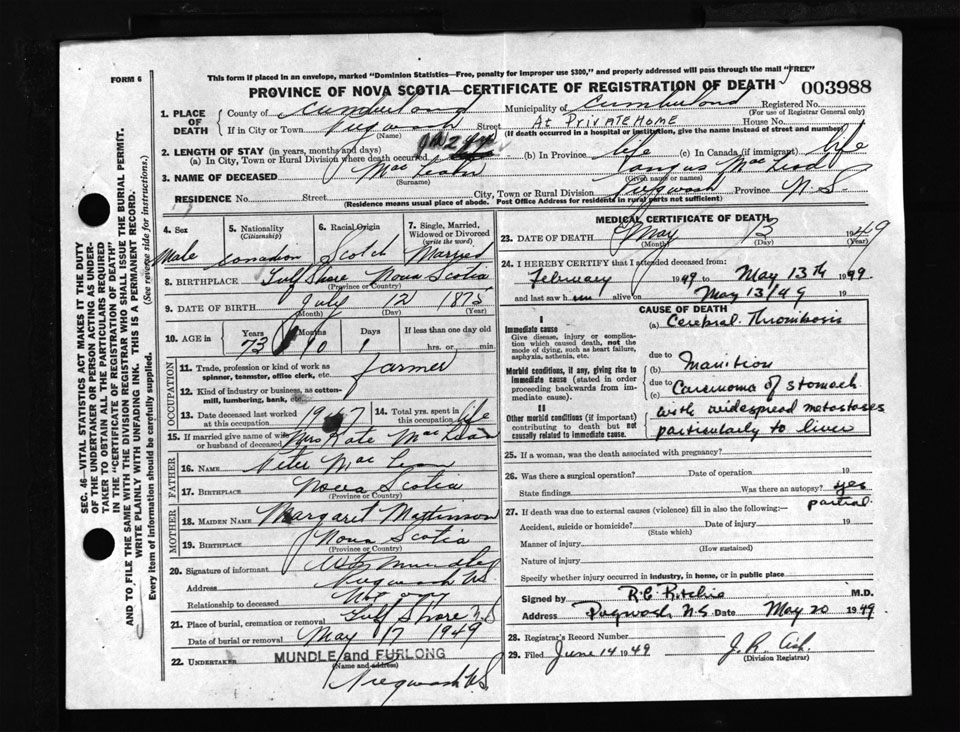 FORM 6
This form if placed in an envelope, marked "Dominion Statistics—Free, penalty for improper use $300," and properly addressed will pass through the mail "FREE"
PROVINCE OF NOVA SCOTIA—CERTIFICATE OF REGISTRATION OF DEATH 003988
1. PLACE OF DEATH
County of Cumberland Municipality of Cumberland Registered No.
(For use of Registrar General only)
If in City or Town Pugwash Street At Private Home House No.
(Name) (If death occurred in a hospital or institution, give the name instead of street and number)
2. LENGTH OF STAY (in years, months and days)
(a) In City, Town or Rural Division where death occurred (b) In Province life (c) In Canada (if immigrant) life
3. NAME OF DECEASED MacLean Angus MacLeod
(Surname) (Given name or names)
RESIDENCE No. Street City, Town or Rural Division Pugwash Province N.S.
(Residence means usual place of abode. Post Office Address for residents in rural parts not sufficient)
4. Sex
Male
5. Nationality
(Citizenship)
Canadian
6. Racial Origin
Scotch
7. Single, Married, Widowed or Divorced
(write the word)
Married
8. BIRTHPLACE Gulf Shore Nova Scotia
(Province or Country)
9. DATE OF BIRTH July 12 1875
(Month) (Day) (Year)
10. AGE in Years Months Days If less than one day old
73 10 1 hrs. or min.
OCCUPATION
11. Trade, profession or kind of work as spinner, teamster, office clerk, etc. farmer
12. Kind of industry or business, as cotton-mill, lumbering, bank, etc.
13. Date deceased last worked at this occupation 1947
14. Total yrs. spent in this occupation life
15. If married give name of wife or husband of deceased Mrs Kate MacLean
FATHER
16. NAME Peter MacLean
17. BIRTHPLACE Nova Scotia
(Province or Country)
MOTHER
18. MAIDEN NAME Margaret Mattinson
19. BIRTHPLACE Nova Scotia
(Province or Country)
20. Signature of informant Mundle
Address Pugwash N.S.
Relationship to deceased Not any
21. Place of burial, cremation or removal Gulf Shore N.S
Date of burial or removal May 17 1949
22. UNDERTAKER MUNDLE and FURLONG
(Name and address)
Pugwash N.S.
MEDICAL CERTIFICATE OF DEATH
23. DATE OF DEATH May 13 1949
(Month) (Day) (Year)
24. I HEREBY CERTIFY that I attended deceased from
February 1949 to May 13th 1949
and last saw him alive on May 13/49 19
CAUSE OF DEATH
I
Immediate cause
Give disease, injury or complication which caused death, not the mode of dying, such as heart failure, asphyxia, asthenia, etc.
(a) Cerebral Thrombosis
due to
Morbid conditions, if any, giving rise to immediate cause (stated in order proceeding backwards from immediate cause).
(b) Inanition
due to
(c) Carcinoma of stomach
with widespread metastases
particularly to liver
II
Other morbid conditions (if important) contributing to death but not causally related to immediate cause.
25. If a woman, was the death associated with pregnancy?
26. Was there a surgical operation? Date of operation 19
State findings Was there an autopsy? yes
partial
27. If death was due to external causes (violence) fill in also the following:—
Accident, suicide or homicide? Date of injury 19
(State which)
Manner of injury
(How sustained)
Nature of injury
Specify whether injury occurred in industry, in home, or in public place
Signed by R.C. Ritchie M.D.
Address Pugwash, N.S. Date May 20 1949
28. Registrar's Record Number
29. Filed June 14 1949
(Division Registrar)
SEC. 46—VITAL STATISTICS ACT MAKES IT THE DUTY
OF THE UNDERTAKER OR PERSON ACTING AS UNDER-
TAKER TO OBTAIN ALL THE PARTICULARS REQUIRED
IN THE "CERTIFICATE OF REGISTRATION OF DEATH"
AND TO FILE THE SAME WITH THE DIVISION REGISTRAR WHO SHALL ISSUE THE BURIAL PERMIT.
WRITE PLAINLY WITH UNFADING INK. THIS IS A PERMANENT RECORD.
Every item of information should be carefully supplied. (See reverse side for instructions.)